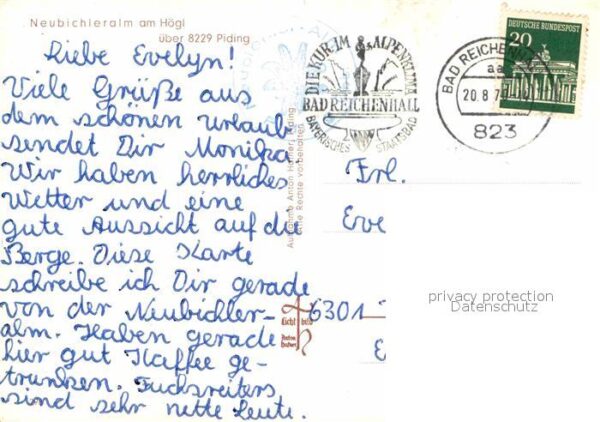 Neubichleralm am Högl
über 8229 Piding
Liebe Evelyn!
Viele Grüße aus
dem schönen Urlaub
sendet Dir Monika.
Wir haben herrliches
Wetter und eine
gute Aussicht auf die
Berge. Diese Karte
schreibe ich Dir gerade
von der Neubichler-
alm. Haben gerade
hier gut Kaffee ge-
trunken. Fuchsreiters
sind sehr nette Leute.
DIE KUR IM ALPENKLIMA
BAD REICHENHALL
BAYERISCHES STAATSBAD
BAD REICHENHALL
aa
20.8.7
823
DEUTSCHE BUNDESPOST
20
Aufnahme Anton Hafner, Piding
Alle Rechte vorbehalten
Licht bild
Frl.
Eve
6301
E
privacy protection
Datenschutz